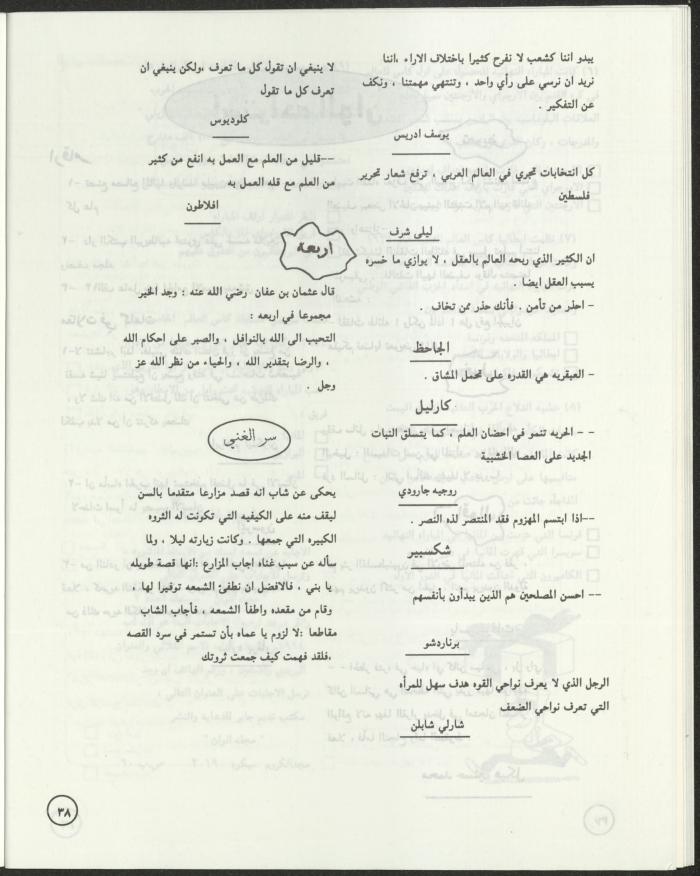 يبدو اننا كشعب لا نفرح كثيرا باختلاف الاراء ،اننا
نريد ان نرسي على رأي واحد ، وتنتهي مهمتنا ، ونكف
عن التفكير .
يوسف ادريس
كل انتخابات تجري في العالم العربي ، ترفع شعار تحرير
فلسطين
ليلى شرف
ان الكثير الذي ربحه العالم بالعقل ، لا يوازي ما خسره
بسبب العقل ايضا .
- احذر من تأمن . فأنك حذر ممن تخاف .
الجاحظ
- العبقريه هي القدره على تحمل المشاق .
كارليل
- - الحريه تنمو في احضان العلم ، كما يتسلق النبات
الجديد على العصا الخشبية
روجيه جارودي
--اذا ابتسم المهزوم فقد المنتصر لذه النصر .
شكسبير
-- احسن المصلحين هم الذين يبدأون بأنفسهم
برناردشو
الرجل الذي لا يعرف نواحي القوه هدف سهل للمرأه
التي تعرف نواحي الضعف
شارلي شابلن
لا ينبغي ان تقول كل ما تعرف ،ولكن ينبغي ان
تعرف كل ما تقول
كلوديوس
--قليل من العلم مع العمل به انفع من كثير
من العلم مع قله العمل به
افلاطون
اربعة
قال عثمان بن عفان رضي الله عنه : وجد الخير
مجموعا في اربعه :
التحبب الى الله بالنوافل ، والصبر على احكام الله
، والرضا بتقدير الله ، والحياء من نظر الله عز
وجل .
سر الغني
يحكى عن شاب انه قصد مزارعا متقدما بالسن
ليقف منه على الكيفيه التي تكونت له الثروه
الكبيره التي جمعها . وكانت زيارته ليلا ، ولما
سأله عن سبب غناه اجاب المزارع :انها قصة طويله
يا بني ، فالافضل ان نطفئ الشمعه توفيرا لها ،
وقام من مقعده واطفأ الشمعه ، فأجاب الشاب
مقاطعا :لا لزوم يا عماه بأن تستمر في سرد القصه
،فلقد فهمت كيف جمعت ثروتك
٣٨